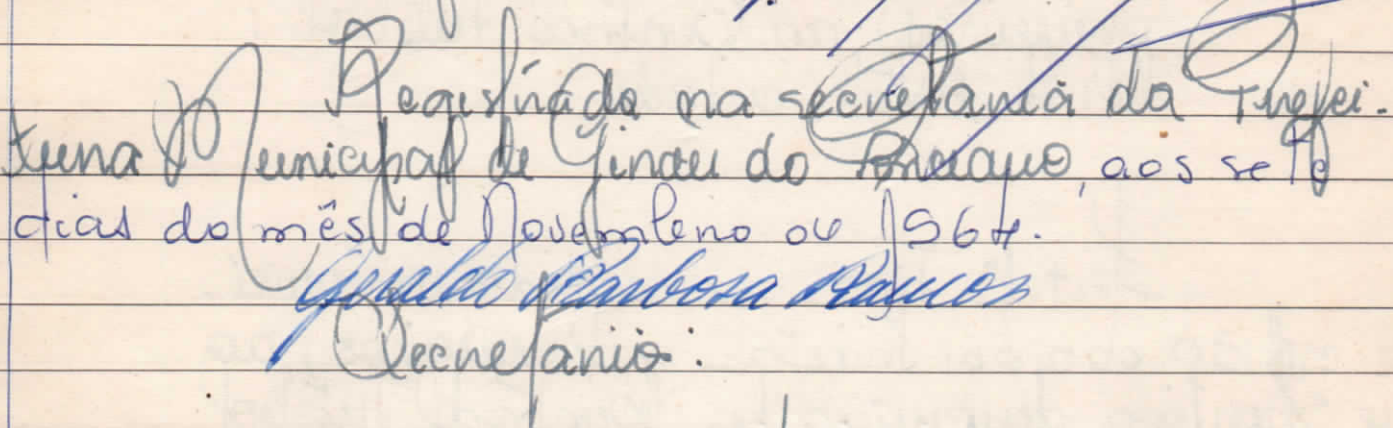 Registrada na secretaria da Prefei-
tura Municipal de Girau do Ponciano, aos sete
dias do mês de Novembro de 1964.
Geraldo Barbosa Ramos
Secretario: